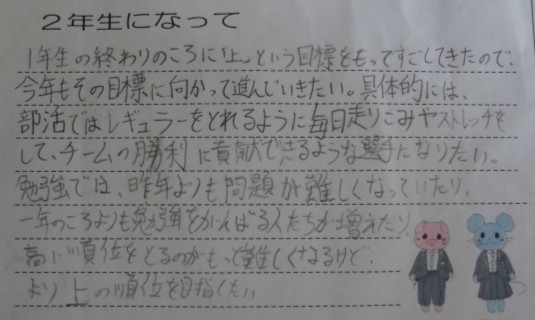 2年生になって
1年生の終わりのころに「上」という目標をもってすごしてきたので、
今年もその目標に向かって進んでいきたい。具体的には、
部活ではレギュラーをとれるように毎日走りこみやストレッチを
して、チームの勝利に貢献できるような選手になりたい。
勉強では、昨年よりも問題が難しくなっていたり、
一年のころよりも勉強をがんばる人たちが増えたり
高い順位をとるのがもっと難しくなるけど、
より上の順位を目指したい